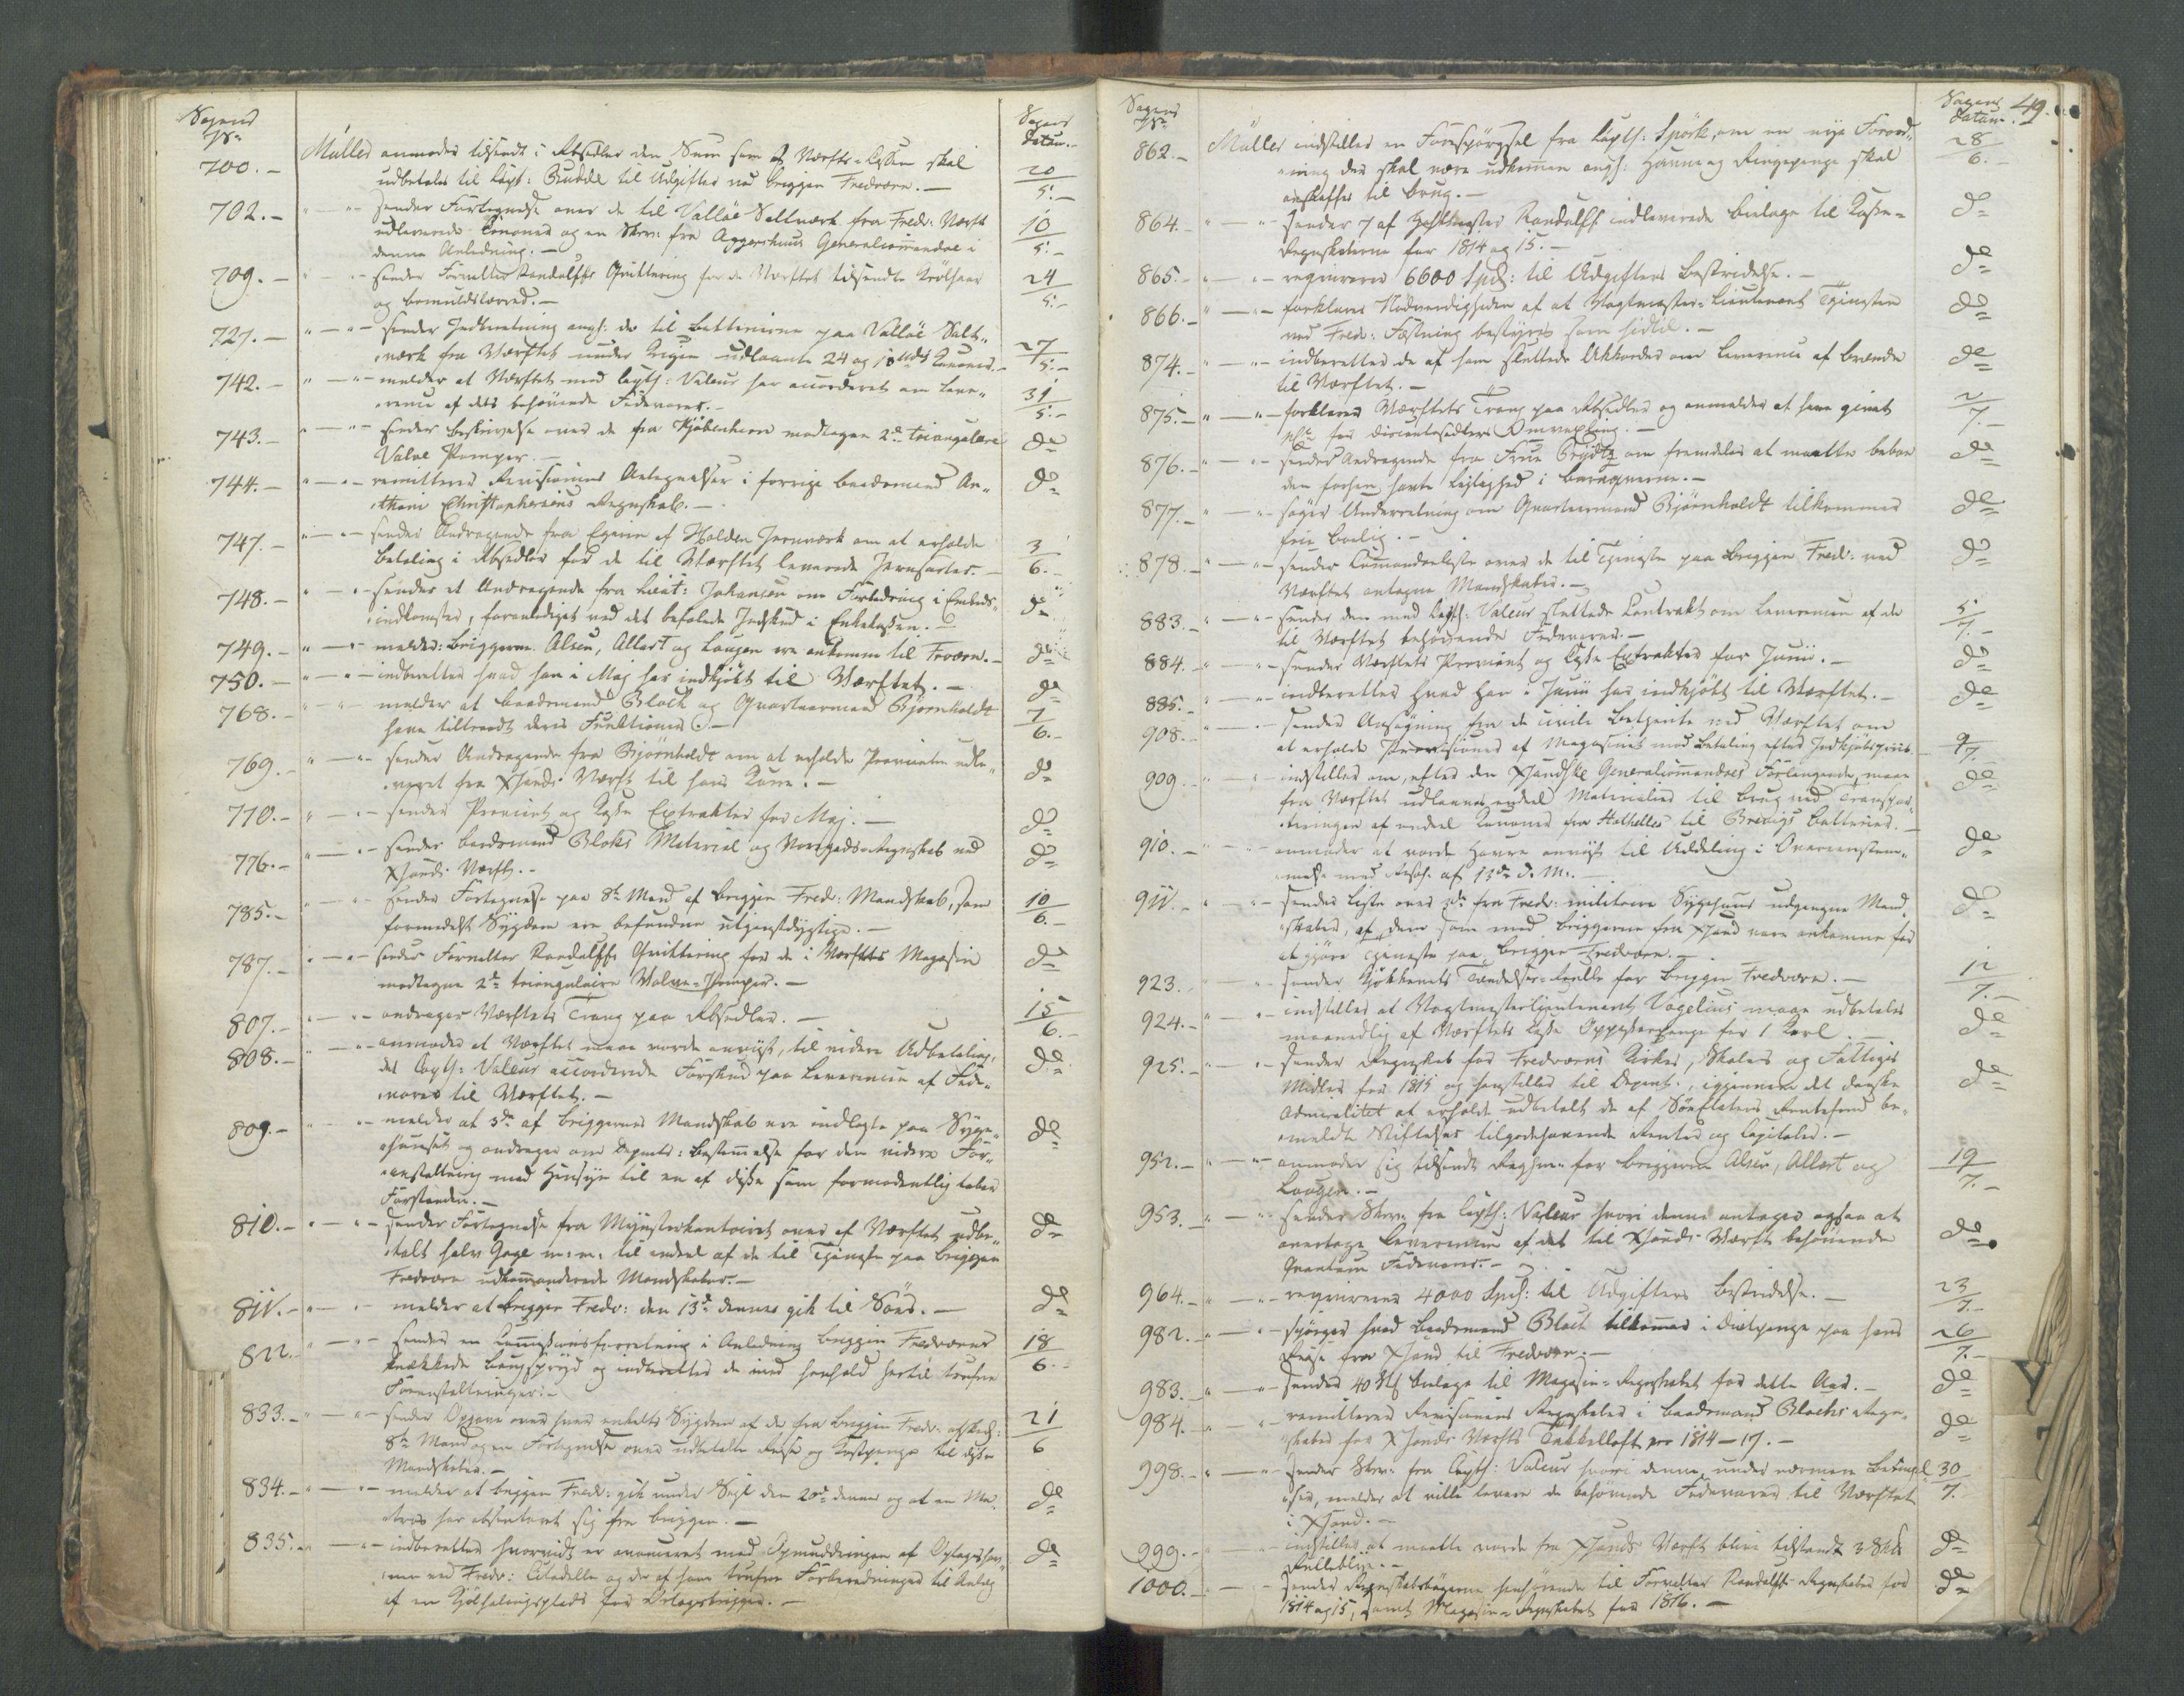 Sagens
No
Sagens
Datum.
700.- Müller anmoder tilsendt i Rbsedler den Sum som af Værfts-Cassen skal 20
udbetales til Capt: Budde til Udgifter ved Briggen Fredværn.- 5.-
702.- " - " - sender Fortegnelse over de til Valløe Saltværk fra Fredr: Værft 10
udleverede Canoner og en Skrv: fra Aggershuus Generalcommandoe i 5.-
denne Anledning.-
709.- " - " - sender Forvalter Randulffs Qvittering for de Værftet tilsendte 24
og bomuldslærred.- 5.-
727.- " - " - sender Indberetning angs: de til Batterierne paa Valløe Salt- 27
værk fra Værftet under Krigen udlaante 24 og 18 Canoner.- 5.-
742.- " - " - melder at Værftet med Capth: Valeur har accorderet om Leve- 31
rence af dets behøvende Fedevarer.- 5.-
743.- " - " - sender Beskrivelse over de fra Kjøbenhavn modtagne 2de triangulaire do
Valve Pomper.-
744.- " - " - remitterer Revisionens Antegnelser i forrige Baadsmand An- do
thoni Christophersens Regnskab.-
747.- " - " - sender Andragende fra Eieren af Holden Jernværk om at erholde 3
Betaling i Rbsedler for de til Værftet leverede Jernsorter.- 6.-
748.- " - " - sender et Andragende fra Lieut: Johansen om Forbedring i Embeds- do
indkomster, foranlediget ved det befalede Indskud i Enkekassen.-
749.- " - " - melder: Briggerne Alsen, Allart og Lougen ere ankomne til Frværn.- do
750.- " - " - indberetter hvad han i Maj har indkjøbt til Værftet.- do
768.- " - " - melder at Baadsmand Block og Qvarteermand Bjørnholdt 7
have tiltraadt deres Funktioner.- 6.-
769.- " - " - sender Andragende fra Bjørnholdt om at erholde Provianten udle- do
veret fra Xsands Værft til hans Kone.-
770.- " - " - sender Proviant og Casse Extrakter for Maj.- do
776.- " - " - sender Baadsmand Bloks Material og Regnskab ved do
Xsands Værft.-
785.- " - " - sender Fortegnelse paa 8te Mand af Briggen Fredr: Mandskab, som 10
formedelst Sygdom ere befundne utjenstdygtige.- 6.-
787.- " - " - sender Forvalter Randulffs Qvittering for de i Værftets Magasin do
modtagne 2de triangulaire Valve-Pomper.-
807.- " - " - andrager Værftets Trang paa Rbsedler.- 15
6.-
808.- " - " - anmoder at Værftet maae vorde anviist, til videre Udbetaling, do
det Capth: Valeur accorderede Forskud paa Leverancen af Fede-
varer til Værftet.-
809.- " - " - melder at 3de af Briggernes Mandskab ere indlagte paa Syge- do
huuset og andrager om Departs: Bestemmelse for den videre For-
anstaltning med Hensyn til en af disse som formodentlig taber
Forstanden.-
810.- " - " - sender Fortegnelse fra Mynsterkontoiret over af Værftet udbe- do
talt halv Gage m:m: til endeel af de til Tjeneste paa Briggen
Fredværn udkommanderede Mandskaber.-
811.- " - " - melder at Briggen Fredv: den 13de dennes gik til Søes.- do
822.- " - " - sender en Commissionsforretning i Anledning Briggen Fredværns 18
knækkede Bougspryd og indberetter de med Henhold hertil trufne 6.-
Foranstaltninger.-
833.- " - " - sender Opgave over hver enkelts Sygdom af de fra Briggen Fredr: afskedt: 21
8te Mand og en Fortegnelse over udbetalte Reise og Kostpenge til disse 6
Mandskaber.-
834.- " - " - melder at Briggen Fredr: gik under Sejl den 20de dennes og at en Ma- do
tros har absenteret sig fra Briggen.-
835.- " - " - indberetter hvorvidt er avanceret med Opmuddringen af Oplagshav- do
nen ved Fredr: Citadelle og de af ham trufne Forberedninger til Anlæg
af en Kjølhalingsplads for Orlogsbrigger.-
Sagens
No
Sagens
Datum
49.
862.- Müller indstiller en Forespørgsel fra Capth: Spørck, om en nye Forord- 28
ning der skal være udkommen angs: Havne og Ringepenge skal 6.-
anskaffes til Brug.-
864.- " - " - sender 7 af Randulff indleverede Bielage til Casse- do
Regnskaberne for 1814 og 15.-
865.- " - " - reqvirerer 6600 Spd: til Udgifters Bestridelse.- do
866.- " - " - forklarer Nødvendigheden af at Vagtmester-Lieutenant Tjenesten do
ved Fredr: Fæstning bestyres som hidtil.-
874.- " - " - indberetter de af ham sluttede Akkorder om Leverence af Brænde do
til Værftet.-
875.- " - " - forklarer Værftets Trang paa Rbsedler og anmelder at have givet 2
for Omvexling.- 7.-
876.- " - " - sender Andragende fra Frue Brydtz om fremdeles at maatte beboe do
den forhen havte Leilighed i Baraquerne.-
877.- " - " - søger Underretning om Qvarteermand Bjørnholdt tilkommer do
frie Bolig.-
878.- " - " - sender Commandoeliste over de til Tjeneste paa Briggen Fredr: ved do
Værftet antagne Mandskaber.-
883.- " - " - sender den med Capth: Valeur sluttede Contrakt om Leverencen af de 5
til Værftet behøvende Fedevarer.- 7.-
884.- " - " - sender Værftets Proviant og Casse Extrakter for Junii.- do
885.- " - " - indberetter hvad han i Junii har indkjøbt til Værftet.- do
908.- " - " - sender Ansøgning fra de civile Betjente ved Værftet om 9
at erholde Provisioner af Magasinet mod Betaling efter Indkjøbspriis. 7.
909.- " - " - indstiller om, efter den Xsandske Generalcommandoes Forlangende, maae do
fra Værftet udlaanes endeel Materialier til Brug ved Transpor-
teringen af endeel Canoner fra Stathellet til Brevigs Batterier.-
910.- " - " - anmoder at vorde Havre anviist til Uddeling i Overeensstem- do
melse med Resol: af 13de d. M.-
911.- " - " - sender Liste over de fra Fredr: militaire Sygehuus udgangne Mand- do
skaber, af dem som med Briggerne fra Xsand vare ankomne for
at gjøre Tjeneste paa Briggen Fredværn.-
923.- " - " - sender Kjøkkenets Tændelser-Rulle for Briggen Fredværn.- 12
7.-
924.- " - " - indstiller at Vagtmesterlieutenant Vogelius maae udbetales do
maanedlig af Værftets Casse Oppasserpenge for 1 Karl.-
925.- " - " - sender Regnskab for Fredværns Kirkes, Skoles og Fattiges do
Midler for 1815 og henstiller til Depart:, igjennem det danske
Admiralitet at erholde udbetalt de af Søe Etatens Rentefond be-
meldte Stiftelser tilgodehavende Renter og Capitaler.-
952.- " - " - anmoder sig tilsendt for Briggerne Alsen, Allart og 19
Lougen.- 7.-
953.- " - " - sender Skrv: fra Capth: Valeur hvori denne antager ogsaa at do
overtage Leverancen af det til Xsands Værft behøvende
Qvantum Fedevarer.-
964.- " - " - reqvirerer 4000 Spd: til Udgifters Bestridelse.- 23
7.-
982.- " - " - spørger hvad Baadsmand Block tilkommer i Diætpenge paa hans 26
Reise fra Xsand til Fredværn.- 7.-
983.- " - " - sender 40 St Bielage til Magasin-Regnskabet for dette Aar.- do
984.- " - " - remitterer Revisionens i Baadsmand Blochs Regn- do
skaber for Xsands Værfts Takkelloft pro 1814-17.-
998.- " - " - sender Skrv: fra Capth: Valeur hvori denne, under nærmere Betingel- 30
ser, melder at ville levere de behøvende Fedevarer til Værftet 7.
i Xsand.-
999.- " - " - indstiller at maatte vorde fra Xsands Værft blive tilsendt 3 do
Rullebly.-
1000.- " - " - sender Regnskabsbøgerne henhørende til Forvalter Randulffs Regnskaber for do
1814 og 15, samt Magasin-Regnskabet for 1816.-